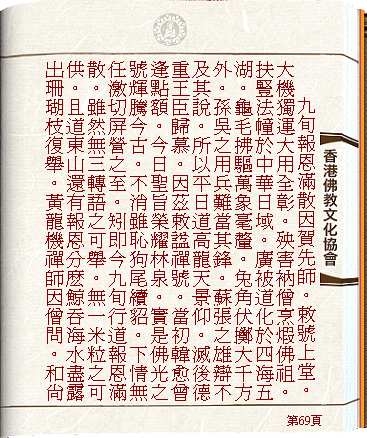 九旬報恩滿散因賀先師。敕號上堂。
大機獨運大用全彰。殃害衲僧烹煅佛祖。
扶豎法幢於中華日域。廣被道化於四海五
湖。龜毛拂驅萬象毫釐。兔角伏擲大千方
外。孫吳之用兵難當其鋒。蘇張之雄辯不
及其說。所以平日道高龍天景仰。滅後德
重王臣歸慕。因茲敕謚禪號。當初韓愈曾
逢點額。今日聖旨榮耀林泉。實是佛光之
號輝騰今古。不消雖恥狗尾續貂。下情無
任激切屏營之至。矧即今九旬行道報恩滿
散。雖然無三轉語之可舉。無一米粒之可
供。且道東山還有報恩分麼鯨吞海水盡露
出珊瑚枝復舉。黃龍機禪師因僧問。和尚
香港佛教文化協會
第69頁